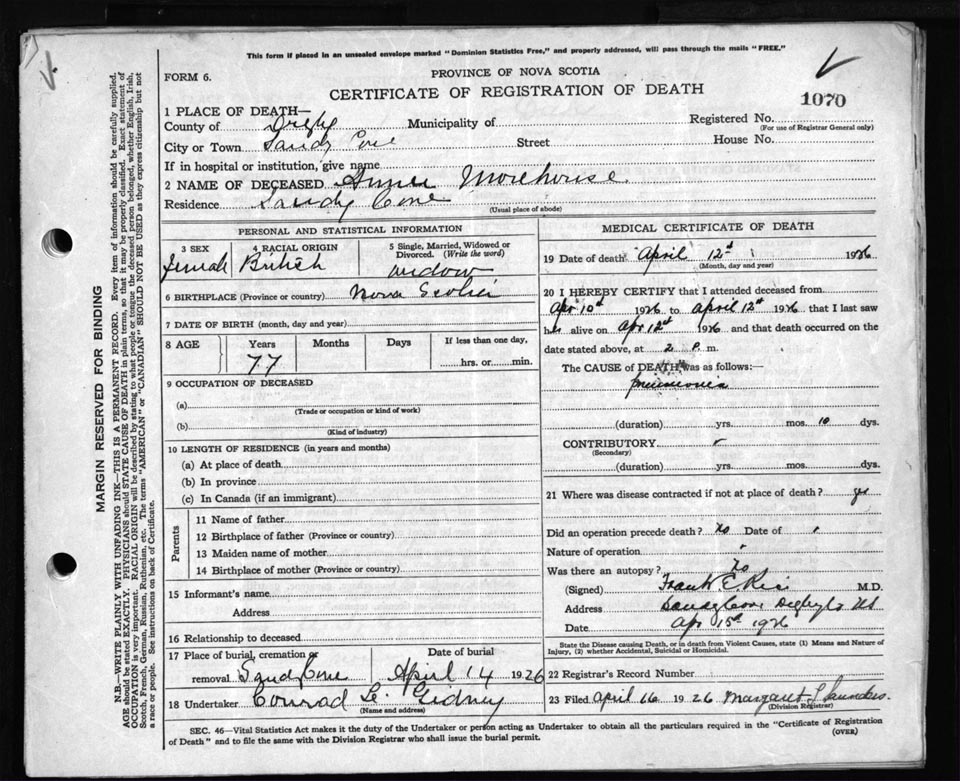 This form if placed in an unsealed envelope marked "Dominion Statistics Free," and properly addressed, will pass through the mails "FREE."
FORM 6.
PROVINCE OF NOVA SCOTIA
CERTIFICATE OF REGISTRATION OF DEATH
1070
1 PLACE OF DEATH—
County of Digby Municipality of
Registered No.
(For use of Registrar General only)
City or Town Sandy Cove Street House No.
If in hospital or institution, give name
2 NAME OF DECEASED Morehouse
Residence Sandy Cove
(Usual place of abode)
PERSONAL AND STATISTICAL INFORMATION
3 SEX 4 RACIAL ORIGIN 5 Single, Married, Widowed or Divorced. (Write the word)
Female British widow
6 BIRTHPLACE (Province or country) Nova Scotia
7 DATE OF BIRTH (month, day and year)
8 AGE Years Months Days If less than one day,
77 hrs. or min.
9 OCCUPATION OF DECEASED
(a)
(Trade or occupation or kind of work)
(b)
(Kind of industry)
10 LENGTH OF RESIDENCE (in years and months)
(a) At place of death
(b) In province
(c) In Canada (if an immigrant)
Parents
11 Name of father
12 Birthplace of father (Province or country)
13 Maiden name of mother
14 Birthplace of mother (Province or country)
15 Informant's name
Address
16 Relationship to deceased
17 Place of burial, cremation or Date of burial
removal Sandy Cove April 14 1926
18 Undertaker Conrad L. Gidney
(Name and address)
MEDICAL CERTIFICATE OF DEATH
19 Date of death April 12th 1926
(Month, day and year)
20 I HEREBY CERTIFY that I attended deceased from
Apr 10th 1926 to April 12th 1926 that I last saw
her alive on Apr 12th 1926 and that death occurred on
date stated above, at 2 P. m.
The CAUSE of DEATH was as follows:
pneumonia
(duration) yrs. mos. 10 dys.
CONTRIBUTORY
(Secondary)
(duration) yrs. mos. dys.
21 Where was disease contracted if not at place of death? yes
Did an operation precede death? No Date of
Nature of operation
Was there an autopsy? No
(Signed) Frank E. Rice M.D.
Address Sandy Cove Digby Co NS
Date Apr 15th 1926
State the Disease causing Death, or in death from Violent Causes, state (1) Means and Nature of
Injury, (2) whether Accidental, Suicidal or Homicidal.
22 Registrar's Record Number
23 Filed April 16 1926 Margaret Saunders.
(Division Registrar)
SEC. 46—Vital Statistics Act makes it the duty of the Undertaker or person acting as Undertaker to obtain all the particulars required in the "Certificate of Registration
of Death" and to file the same with the Division Registrar who shall issue the burial permit.
(OVER)
MARGIN RESERVED FOR BINDING
N.B.—WRITE PLAINLY WITH UNFADING INK—THIS IS A PERMANENT RECORD. Every item of information should be carefully supplied.
AGE should be stated EXACTLY. PHYSICIANS should STATE CAUSE OF DEATH in plain terms, so that it may be properly classified. Exact statement of
OCCUPATION is very important. RACIAL ORIGIN will be described by stating to what people or tongue the deceased person belonged, whether English, Irish,
Scotch, French, German, Russian, Ruthenian, etc. The terms "AMERICAN" or "CANADIAN" SHOULD NOT BE USED as they express citizenship but not
a race or people. See instructions on back of Certificate.